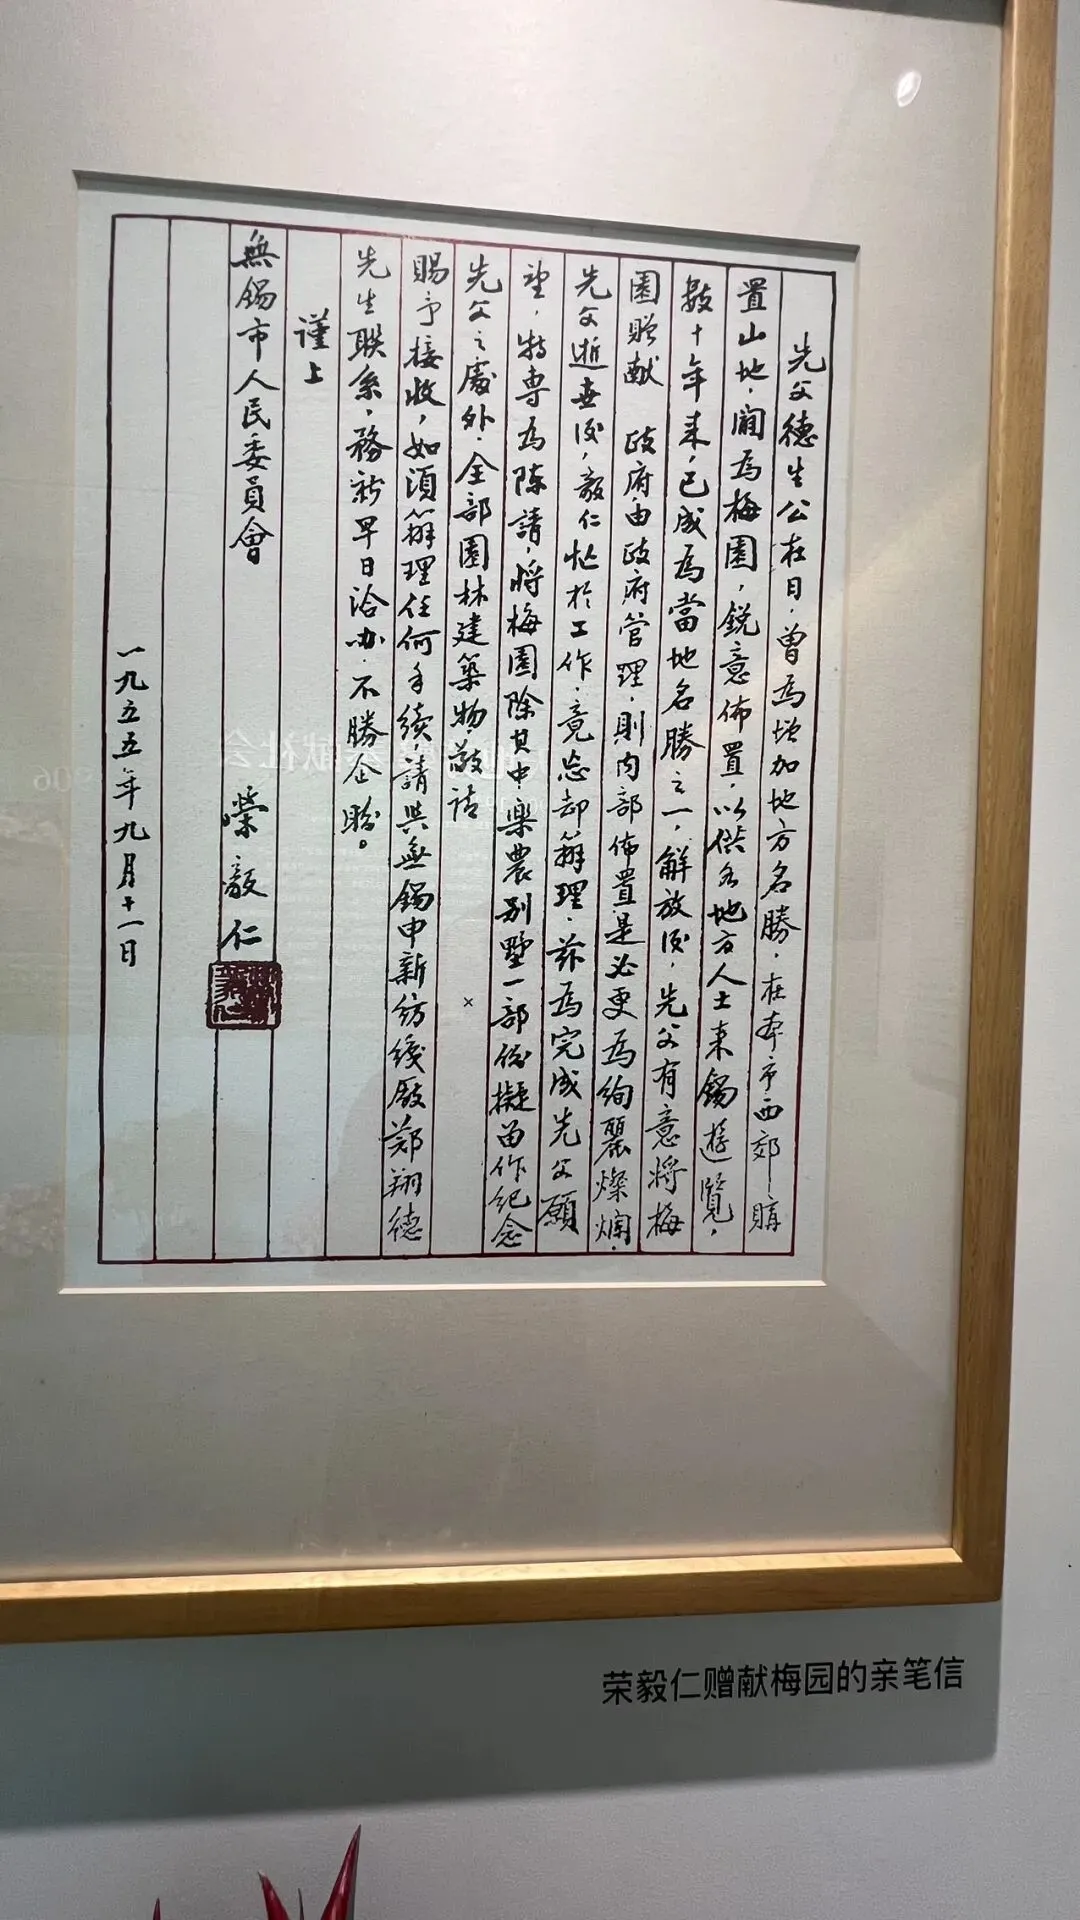 先父德生公在日，曾為增加地方名勝，在本市西郊購
置山地，闢為梅園，銳意佈置，以供各地方人士来錫遊覽，
數十年来，已成為當地名勝之一，解放後，先父有意將梅
園贈献　政府由政府管理，則内部佈置是必更為絢麗燦爛，
先父逝世後，毅仁忙於工作，竟忘却辦理，兹為完成先父願
望，特專為陳請，將梅園除其中樂農别墅一部份擬留作紀念
先父之處外，全部園林建築物，敬請
賜予接收，如須辦理任何手續，請與無錫申新紡織廠鄭翔德
先生联系，務祈早日洽办，不勝企盼。
謹上
無錫市人民委員會
榮毅仁
一九五五年九月十一日
荣毅仁赠献梅园的亲笔信